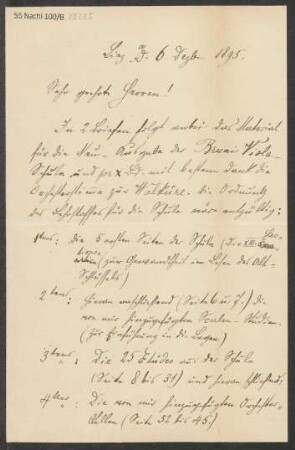 55 Nachl 100/B
Linz a/D. 6. Dezbr 1895.
Sehr geehrte Herren!
In 2 Briefen folgt anbei das Material
für die Neu-Ausgabe der Bruni Viola-
Schule und pr X Bd. mit bestem Dank die
Orchesterstimme zur Walküre. die Ordnung
des Lehrstoffes für die Schule wäre entgültig:
1tens: die 5 ersten Seiten der Schule (die XIII
(zur Gewandtheit im Lesen des Alt-
Schlüssels)
2tens: hieran anschliessend (Seite 6 u. 7.) die
von mir hinzugefügten Scalen-Studien.
(zur Einführung in die Lagen)
3tens: Die 25 Etüden aus der Schule
(Seite 8 bis 31) und hieran schliessend,
4tens: Die von mir hinzugefügten Orchester-
stellen (Seite 32 bis 45.)